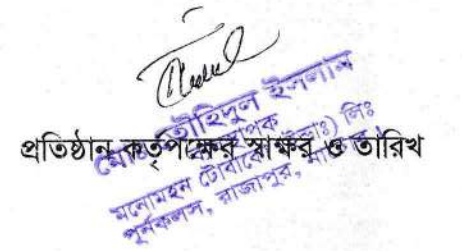 মোঃ তৌহিদুল ইসলাম
প্রতিষ্ঠান কর্তৃপক্ষের স্বাক্ষর ও তারিখ
মনোমহন টোবাকো লিঃ
পূর্নকলস, রাজাপুর,